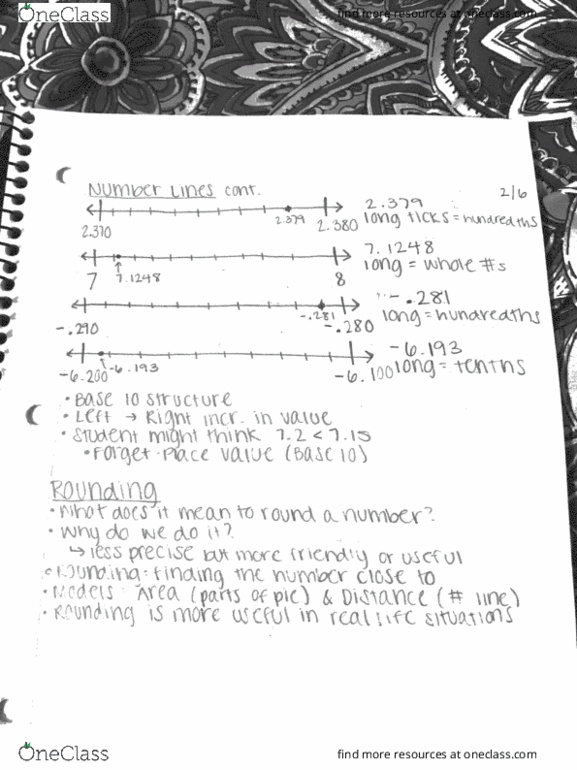 OneClass
find more resources at oneclass.com
NUMBER LINES cont.
2/6
2.370
2.379
2.380
2.379
long ticks = hundredths
7
7.1248
8
7.1248
long = whole #s
-.290
-.281
-.280
-.281
long = hundredths
-6.200
-6.193
-6.100
-6.193
long = tenths
• Base 10 structure
• Left → Right incr. in value
• Student might think 7.2 < 7.15
• Forget place value (Base 10)
ROUNDING
• What does it mean to round a number?
• Why do we do it?
↳ less precise but more friendly or useful
• Rounding = finding the number close to
• Models: Area (parts of pic) & Distance (# line)
• Rounding is more useful in real life situations
OneClass
find more resources at oneclass.com